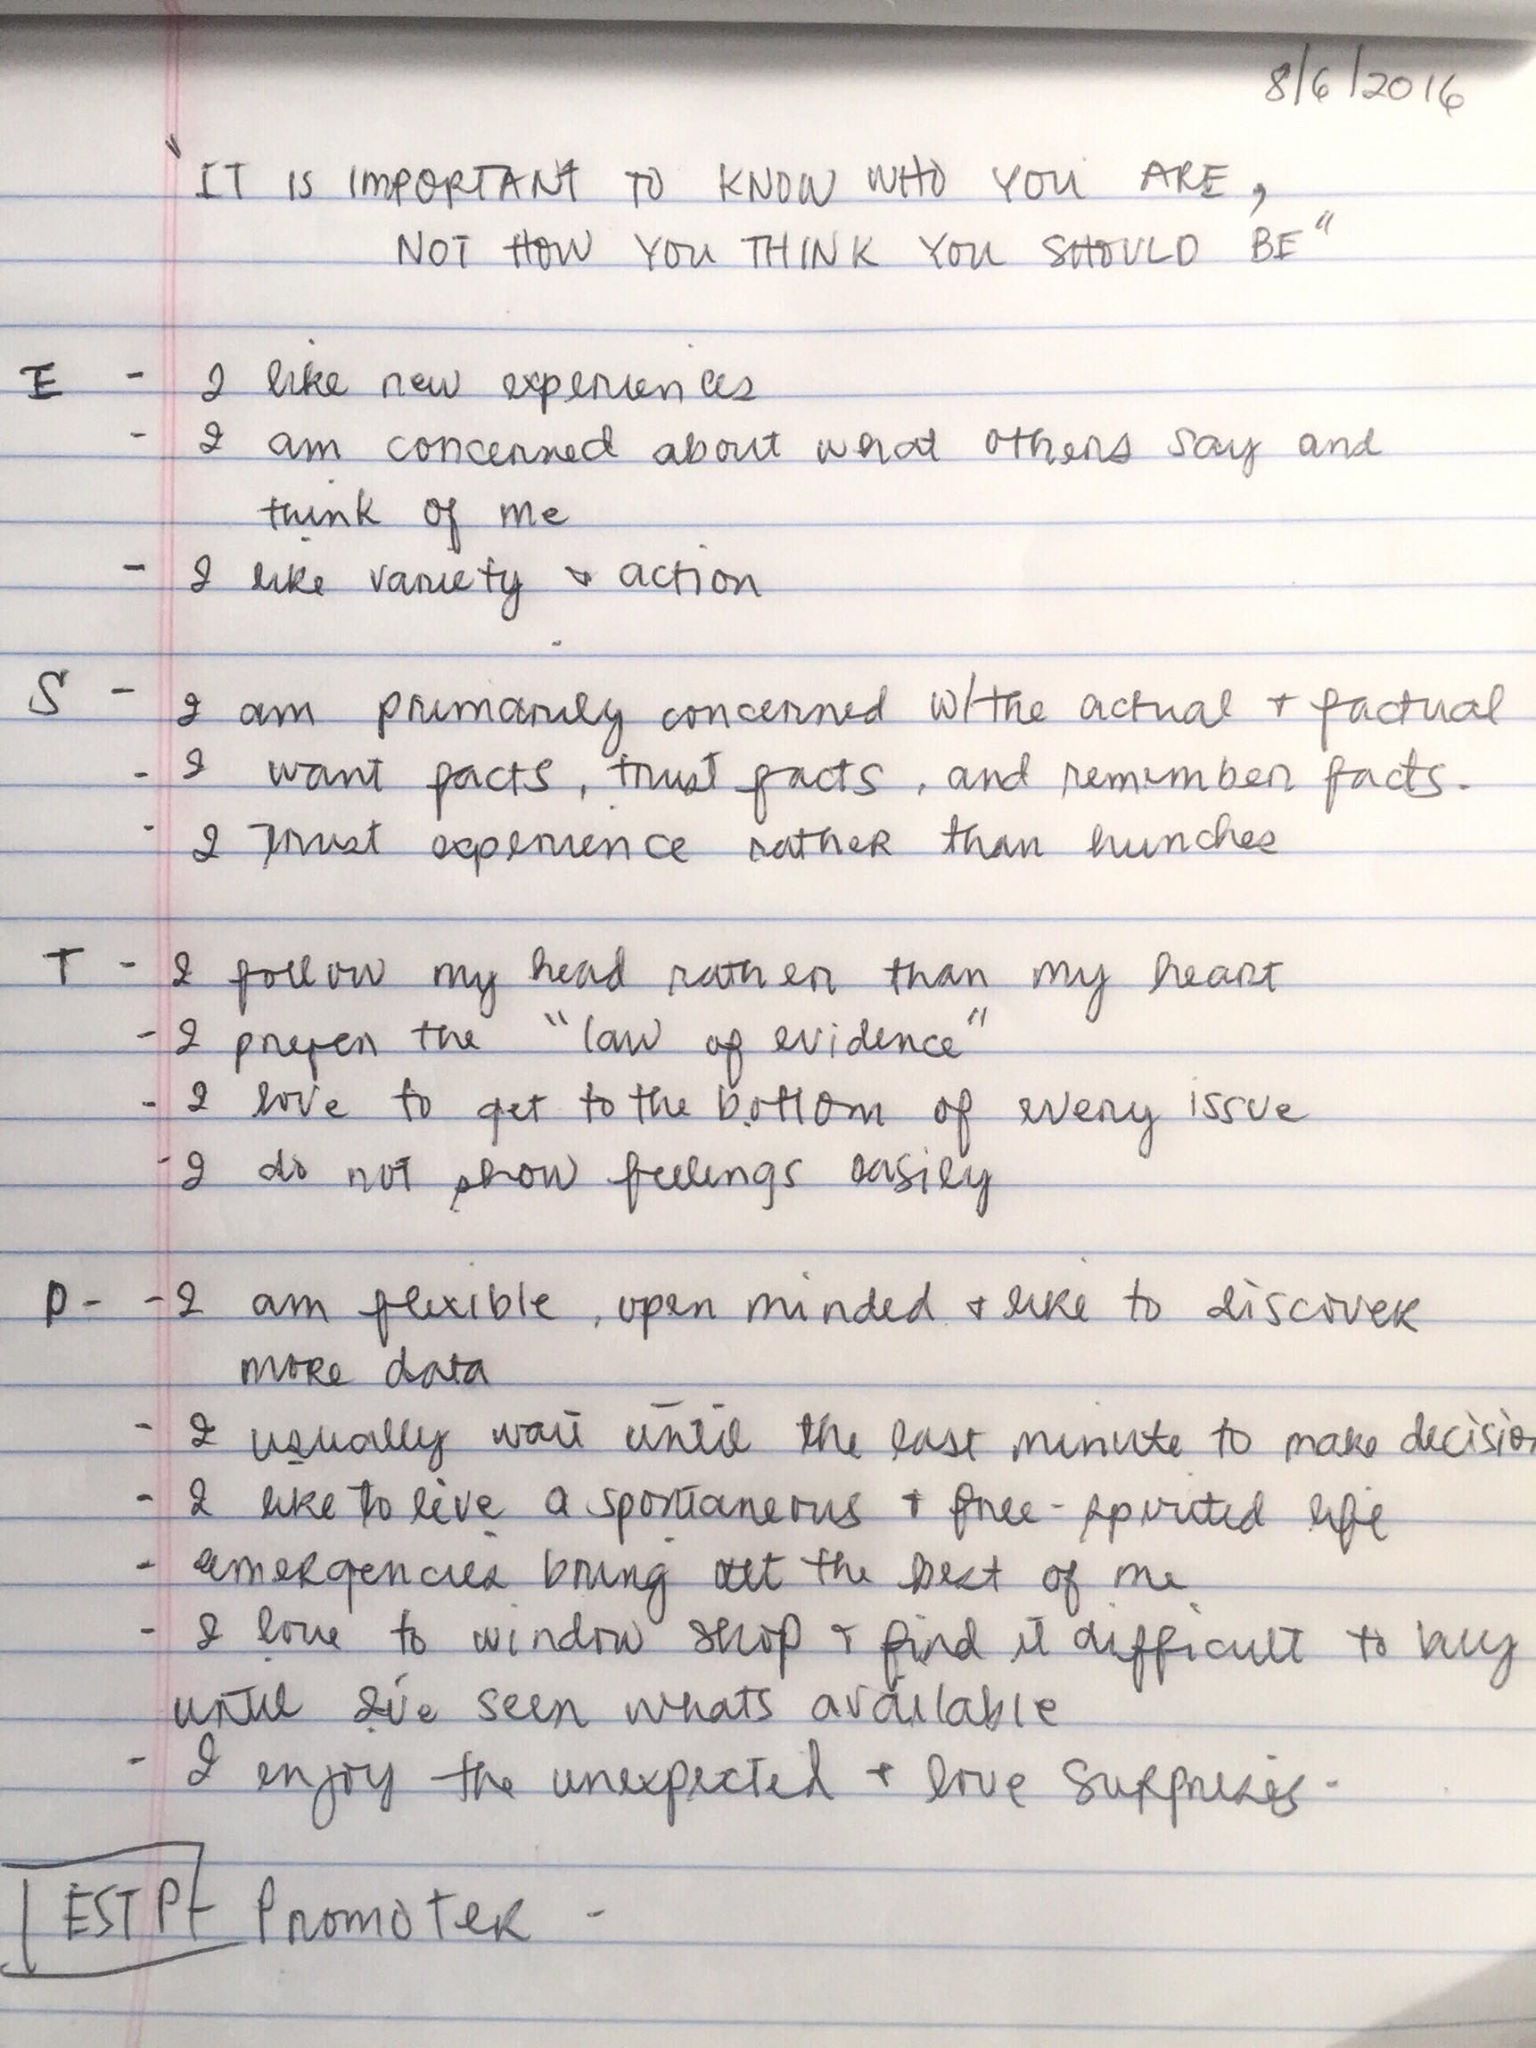 8/6/2016
" IT IS IMPORTANT TO KNOW WHO YOU ARE,
NOT HOW YOU THINK YOU SHOULD BE"
E - I like new experiences
- I am concerned about what others say and
think of me
- I like variety & action
S - I am primarily concerned w/the actual + factual
- I want facts, trust facts, and remember facts.
- I Trust experience rather than hunches
T - I follow my head rather than my heart
- I prefer the "law of evidence"
- I love to get to the bottom of every issue
- I do not show feelings easily
P - - I am flexible, open minded + like to discover
more data
- I usually wait until the last minute to make decision
- I like to live a spontaneous + free-spirited life
- emergencies bring out the best of me
- I love to window shop & find it difficult to buy
until I've seen whats available
- I enjoy the unexpected + love surprises -
ESTP Promoter -